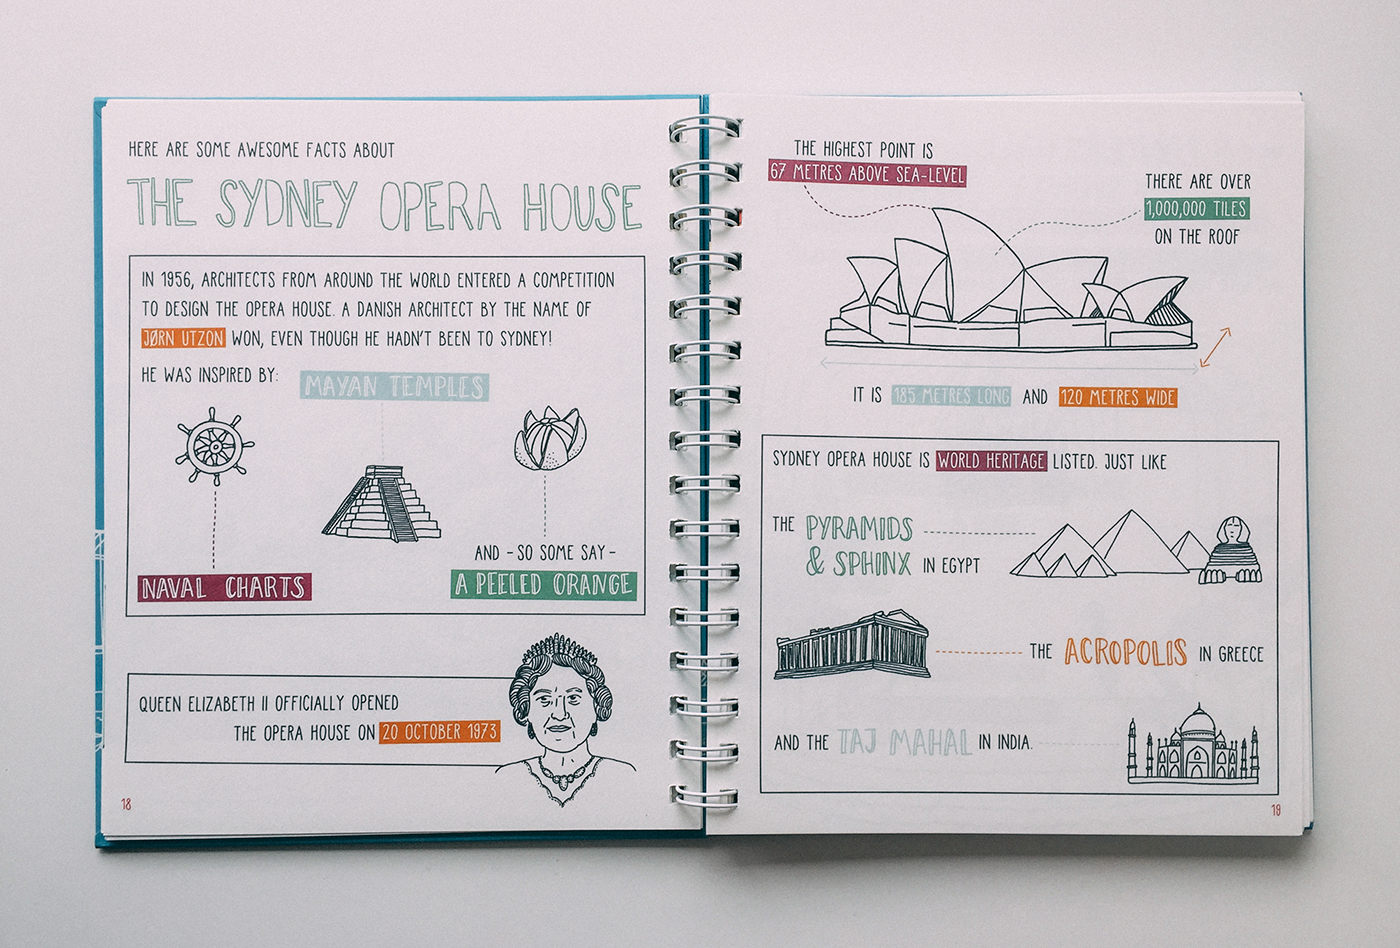 HERE ARE SOME AWESOME FACTS ABOUT
THE SYDNEY OPERA HOUSE
IN 1956, ARCHITECTS FROM AROUND THE WORLD ENTERED A COMPETITION
TO DESIGN THE OPERA HOUSE. A DANISH ARCHITECT BY THE NAME OF
JØRN UTZON WON, EVEN THOUGH HE HADN'T BEEN TO SYDNEY!
HE WAS INSPIRED BY:
MAYAN TEMPLES
AND - SO SOME SAY -
NAVAL CHARTS
A PEELED ORANGE
QUEEN ELIZABETH II OFFICIALLY OPENED
THE OPERA HOUSE ON 20 OCTOBER 1973
18
THE HIGHEST POINT IS
67 METRES ABOVE SEA-LEVEL
THERE ARE OVER
1,000,000 TILES
ON THE ROOF
IT IS 185 METRES LONG AND 120 METRES WIDE
SYDNEY OPERA HOUSE IS WORLD HERITAGE LISTED. JUST LIKE
THE PYRAMIDS
& SPHINX IN EGYPT
THE ACROPOLIS IN GREECE
AND THE TAJ MAHAL IN INDIA.
19